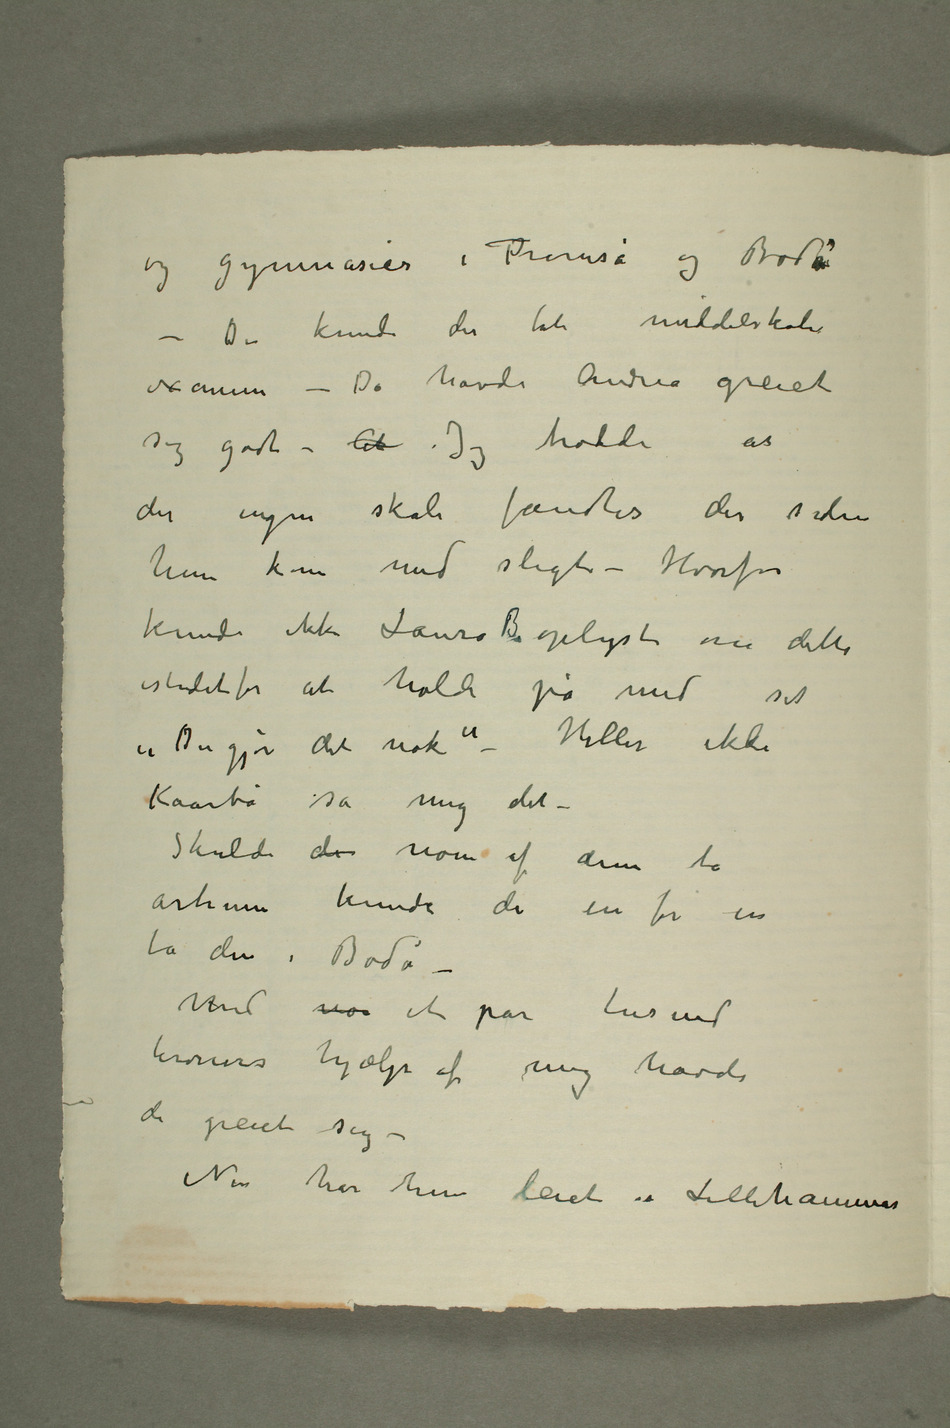 og gymnasier i Tromsø og Bodø
– De kunde der tat middelskole
examen – Da havde Andrea greiet
sig godt – At Jeg trodde at
der ingen skole fandtes der siden
hun kom med sligt – Hvorfor
kunde ikke Laura B oplyst om dette
istedetfor at holde på med sit
„Du gjør det nok“ – Heller ikke
Kaarbø sa mig det –
Skulde de noen af dem ta
artium kunde de en for en
ta den i Bodø –
Med noe et par tusind
kroners hjælp af mig havde
de greiet sig –
Nu har hun leiet på Lillehammer